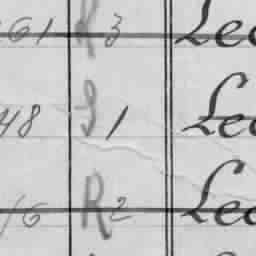 61 R 3 Le
48 S 1 Le
16 R 2 Le